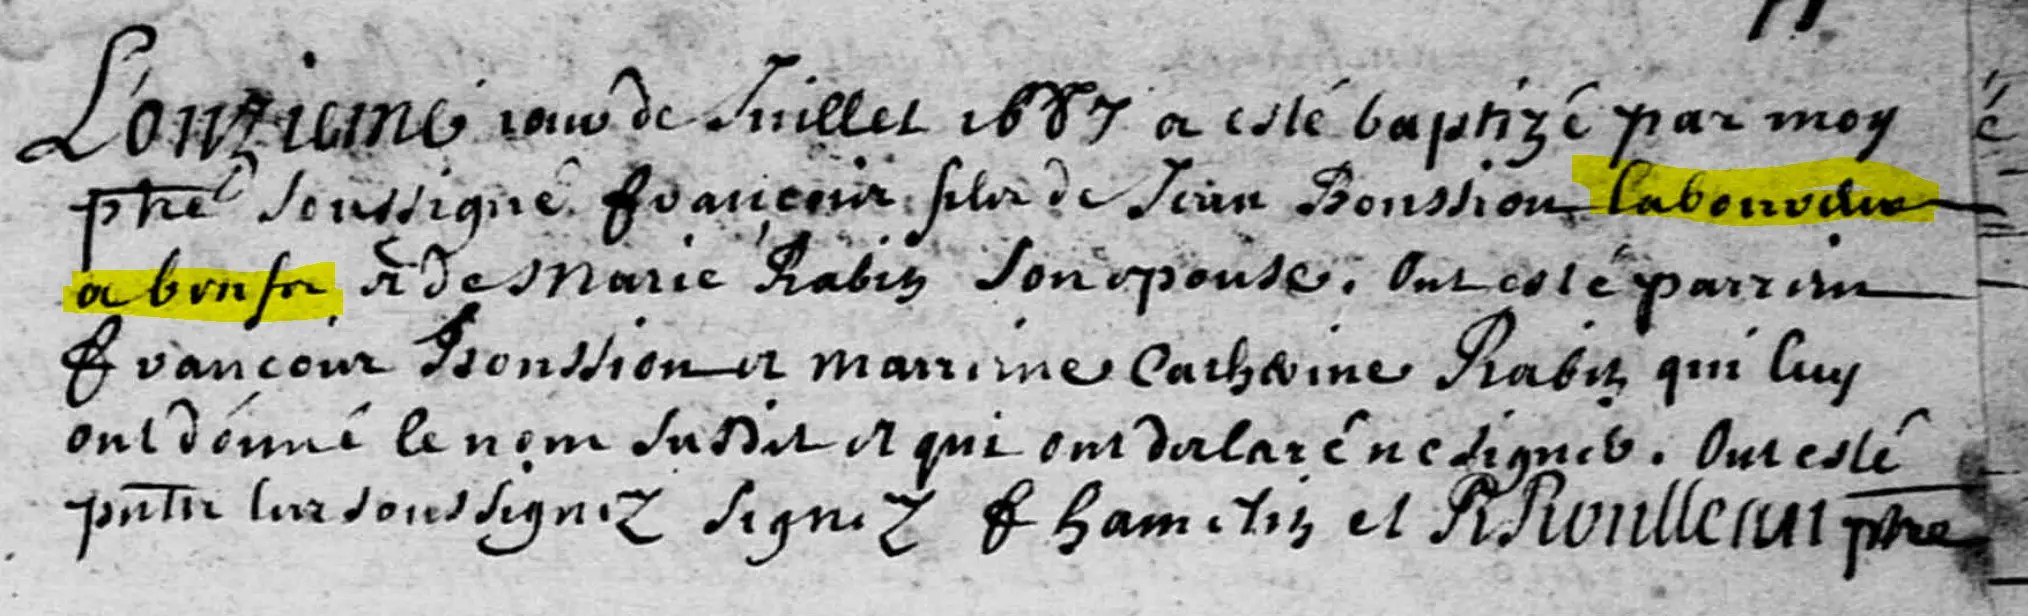 L'onzieme iour de Juillet 1687 a esté baptizé par moy
ptre soussigné François filz de Jean Boussion laboureur
a boufer et de Marie Rabin son epouse. Ont esté parrein
François Boussion et marreine Catherine Rabin qui luy
ont donné le nom susdit et qui ont declaré ne signer. Ont esté
pntz les soussignez signez f hamelin et R Roulleau ptre